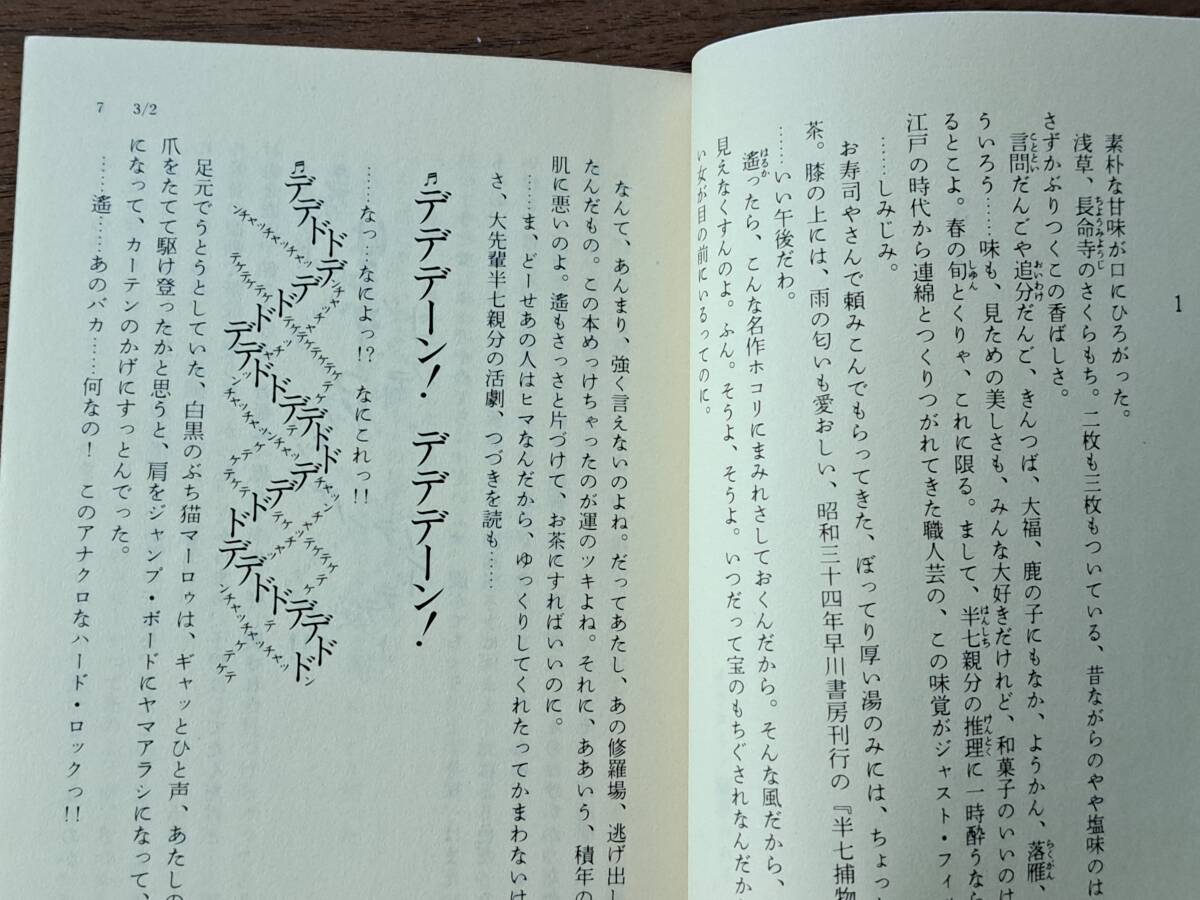 1
素朴な甘味が口にひろがった。
浅草、長命寺のさくらもち。二枚も三枚もついている、昔ながらのやや塩味のは
さずかぶりつくこの香ばしさ。
言問だんごや追分だんご、きんつば、大福、鹿の子にもなか、ようかん、落雁、
ういろう……味も、見ための美しさも、みんな大好きだけれど、和菓子のいいのは
るとこよ。春の旬とくりゃ、これに限る。まして、半七親分の推理に一時酔うなら
江戸の時代から連綿とつくりつがれてきた職人芸の、この味覚がジャスト・フィッ
……しみじみ。
お寿司やさんで頼みこんでもらってきた、ぼってり厚い湯のみには、ちょっ
茶。膝の上には、雨の匂いも愛おしい、昭和三十四年早川書房刊行の『半七捕物
……いい午後だわ。
遙ったら、こんな名作ホコリにまみれさしておくんだから。そんな風だから、
見えなくすんのよ。ふん。そうよ、そうよ。いつだって宝のもちぐされなんだか
い女が目の前にいるってのに。
7 3/2
なんて、あんまり、強く言えないのよね。だってあたし、あの修羅場、逃げ出し
たんだもの。この本めっけちゃったのが運のツキよね。それに、ああいう、積年の
肌に悪いのよ。遙もさっさと片づけて、お茶にすればいいのに。
……ま、どーせあの人はヒマなんだから、ゆっくりしてくれたってかまわないけ
さ、大先輩半七親分の活劇、つづきを読も……
♬デデデーン！ デデデーン！
……なっ……なによっ!? なにこれっ!!
♬デデドドデデドドデデドドデデデドド
足元でうとうとしていた、白黒のぶち猫マーロゥは、ギャッとひと声、あたしの
爪をたてて駆け登ったかと思うと、肩をジャンプ・ボードにヤマアラシになって、
になって、カーテンのかげにすっとんでった。
……遙……あのバカ……何なの！ このアナクロなハード・ロックっ!!